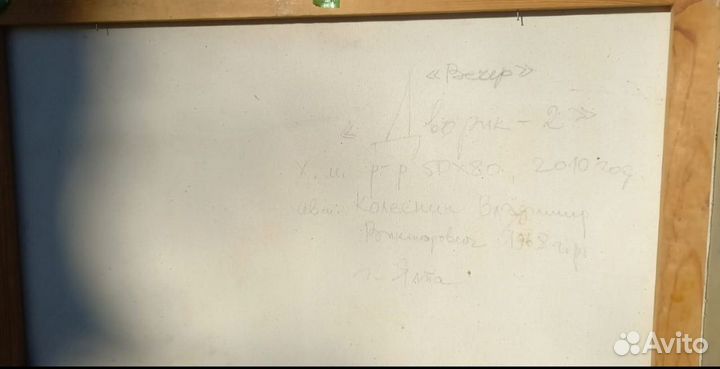 «Вечер»
« Дворик - 2 »
х. м. р-р 50х80, 2010 год.
авт: Колесник Владимир
Викторович 1968 г.р.
г. Ялта
Avito